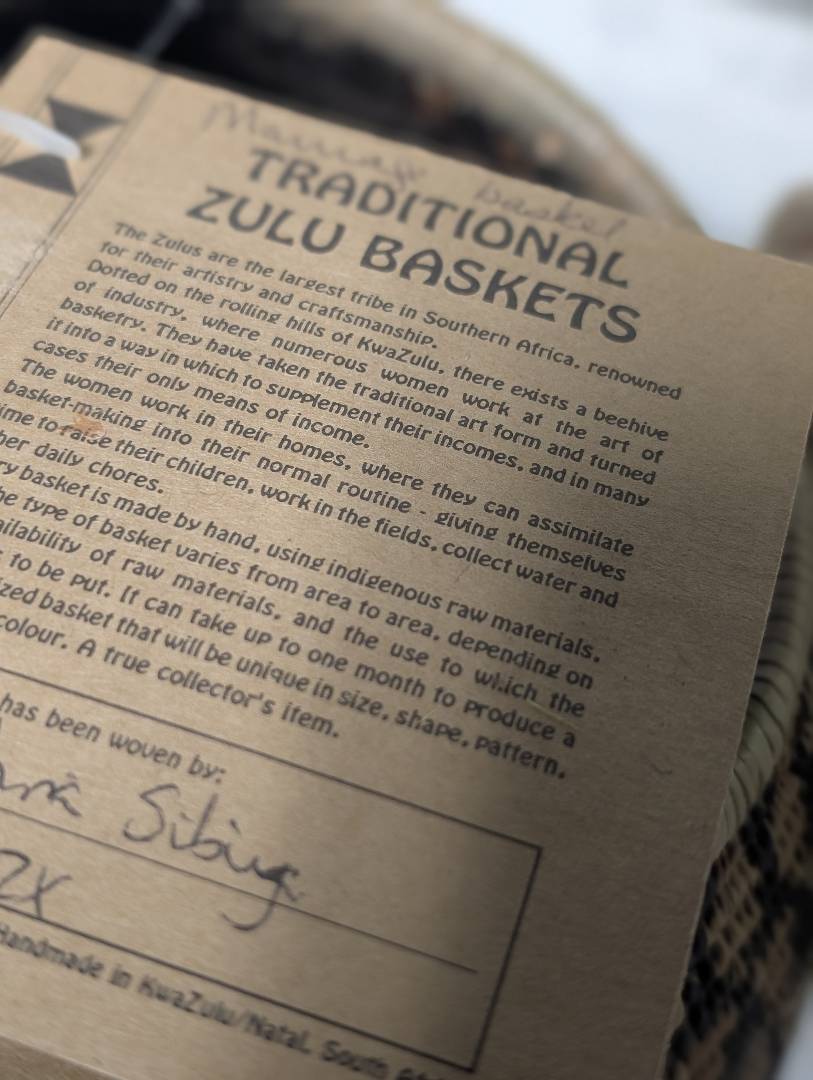 Marriage basket
TRADITIONAL
ZULU BASKETS
The Zulus are the largest tribe in Southern Africa, renowned
for their artistry and craftsmanship.
Dotted on the rolling hills of KwaZulu, there exists a beehive
of industry, where numerous women work at the art of
basketry. They have taken the traditional art form and turned
it into a way in which to supplement their incomes, and in many
cases their only means of income.
The women work in their homes, where they can assimilate
basket-making into their normal routine - giving themselves
ime to raise their children, work in the fields, collect water and
her daily chores.
ry basket is made by hand, using indigenous raw materials.
he type of basket varies from area to area, depending on
ailability of raw materials, and the use to which the
to be put. It can take up to one month to produce a
zed basket that will be unique in size, shape, pattern,
colour. A true collector's item.
has been woven by:
Sibiya
Handmade in KwaZulu/Natal, South